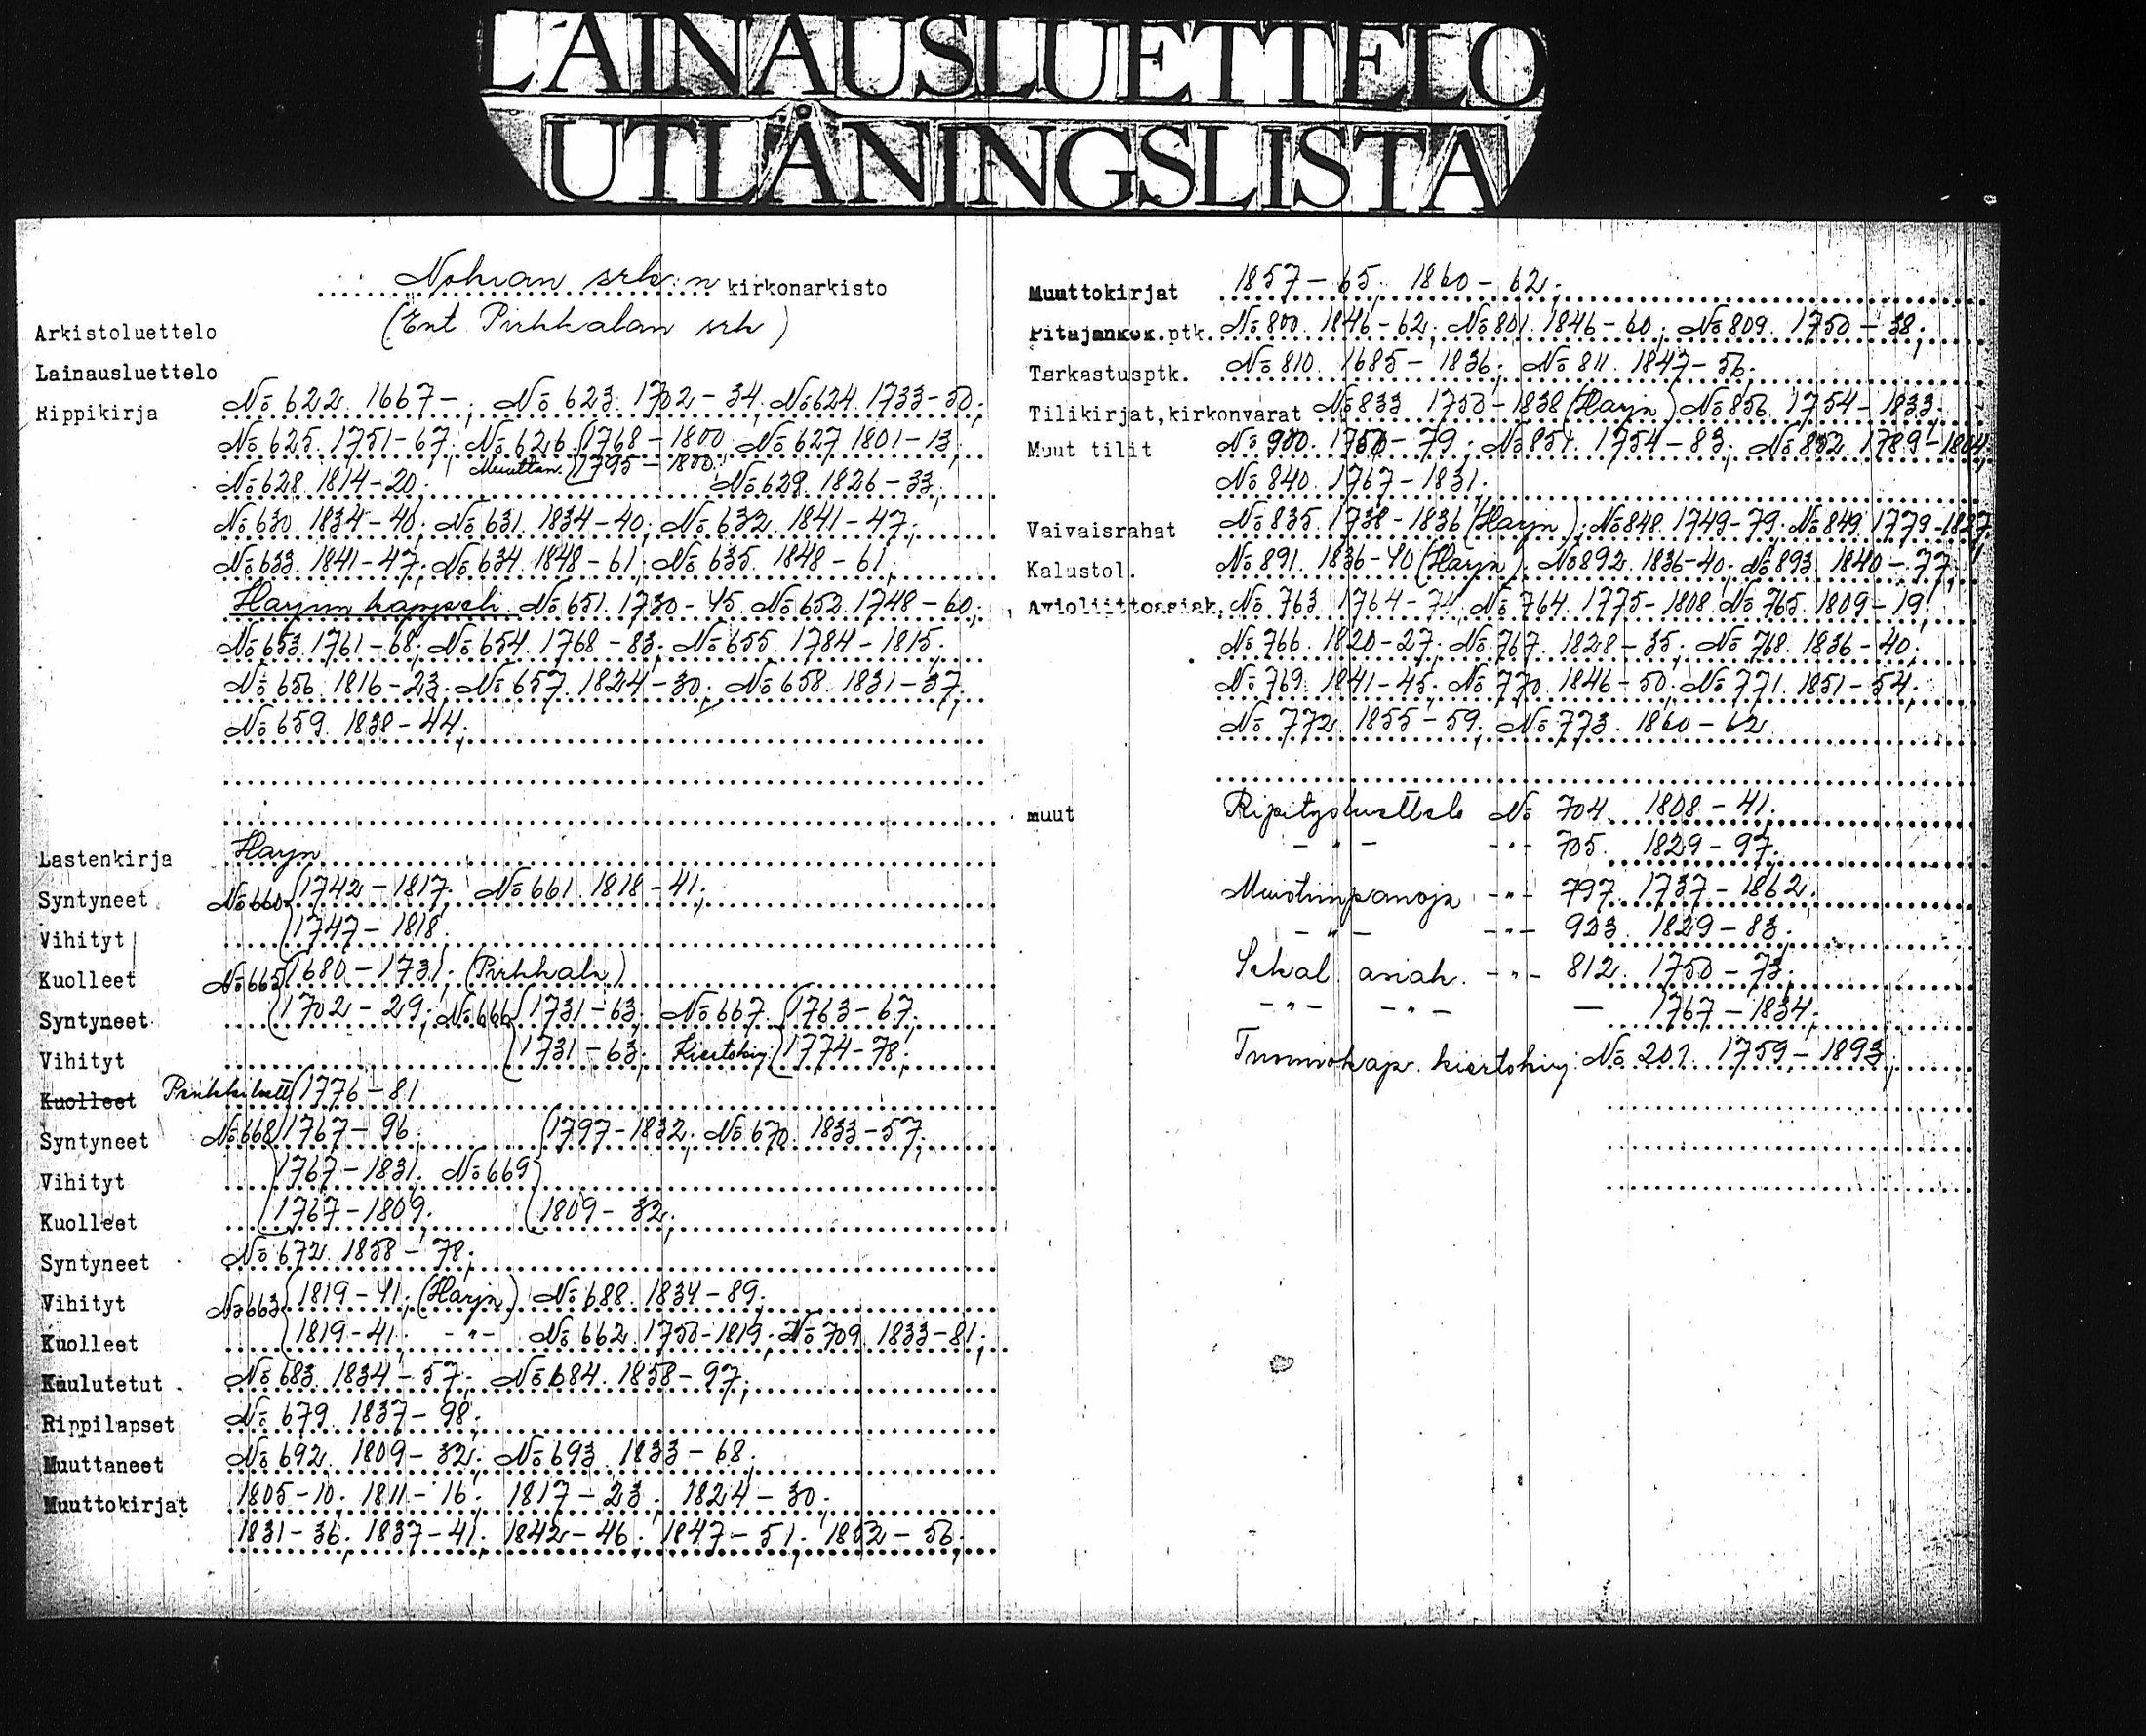 LAINAUSLUETTELO
UTLÅNINGSLISTA
Nokian srk:n kirkonarkisto
Arkistoluettelo (Ent Pirkkalan srk)
Lainausluettelo
Rippikirja No 622. 1667-; No 623. 1702-34; No 624. 1733-50;
No 625. 1751-67; No 626. 1768-1800 No 627 1801-13;
No 628. 1814-20; Muuttan. 1795-1800. No 629. 1826-33;
No 630 1834-40; No 631. 1834-40; No 632. 1841-47;
No 633. 1841-47; No 634. 1848-61; No 635. 1848-61;
Harjun kappseli. No 651. 1730-45. No 652. 1748-60;
No 653. 1761-68; No 654. 1768-83; No 655. 1784-1815;
No 656. 1816-23; No 657. 1824-30; No 658. 1831-37;
No 659. 1838-44;
Lastenkirja Harjn
Syntyneet No 660 1742-1817; No 661. 1818-41;
Vihityt 1747-1818.
Kuolleet No 665 1680-1731. (Pirkkala)
Syntyneet 1702-29; No 666 1731-63; No 667. 1763-67;
Vihityt 1731-63; Kiertokirj. 1774-78;
Kuolleet 1776-81
Syntyneet No 668 1767-96 1797-1832; No 670. 1833-57;
Vihityt 1767-1831. No 669
Kuolleet 1767-1809. 1809-32;
Syntyneet No 672. 1858-78;
Vihityt No 663 1819-41; (Harjn) No 688. 1834-89;
Kuolleet 1819-41. -"- No 662. 1750-1819; No 709. 1833-81;
Kuulutetut No 683. 1834-57; No 684. 1858-97;
Rippilapset No 679. 1837-98;
Muuttaneet No 692. 1809-32; No 693. 1833-68;
Muuttokirjat 1805-10; 1811-16; 1817-23; 1824-30;
1831-36; 1837-41; 1842-46; 1847-51; 1852-56;
Muuttokirjat 1857-65; 1860-62;
Pitäjänkok.ptk. No 800. 1846-62; No 801. 1846-60; No 809. 1750-38;
Tarkastusptk. No 810. 1685-1836; No 811. 1847-56.
Tilikirjat,kirkonvarat No 833 1750-1838 (Harjn) No 856. 1754-1833.
Muut tilit No 900. 1750-79; No 851. 1754-83; No 852. 1789-1804;
No 840. 1767-1831.
Vaivaisrahat No 835. 1738-1836 (Harjn); No 848. 1749-79. No 849. 1779-1827;
Kalustol. No 891. 1836-40 (Harjn). No 892. 1836-40; No 893. 1840-77;
Avioliittoasiak. No 763. 1764-74; No 764. 1775-1808. No 765. 1809-19.
No 766. 1820-27; No 767. 1828-35; No 768. 1836-40;
No 769. 1841-45; No 770. 1846-50; No 771. 1851-54;
No 772. 1855-59; No 773. 1860-62
muut Ripitysluettelo No 704. 1808-41.
-"- -"- 705. 1829-97.
Muistiinpanoja -"- 797. 1737-1862.
-"- -"- 923. 1829-83.
Sekal. asiak. -"- 812. 1750-73;
-"- -"- - 1767-1834;
Tuomiokap. kiertokirj. No 201. 1759-1893;